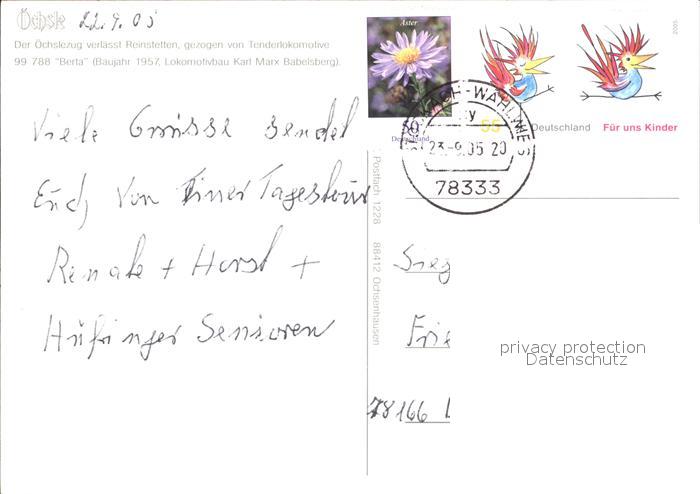 Öchsle 22.9.05
Der Öchslezug verlässt Reinstetten, gezogen von Tenderlokomotive
99 788 "Berta" (Baujahr 1957, Lokomotivbau Karl Marx Babelsberg).
Viele Grüsse sendet
Euch von Einer Tagestour
Renate + Horst +
Hüfinger Senioren
Postfach 1228 88412 Ochsenhausen
Aster
50
Deutschland
55
Deutschland Für uns Kinder
2005
23.-9.05 20
78333
Sieg
Frie
78166 
privacy protection
Datenschutz